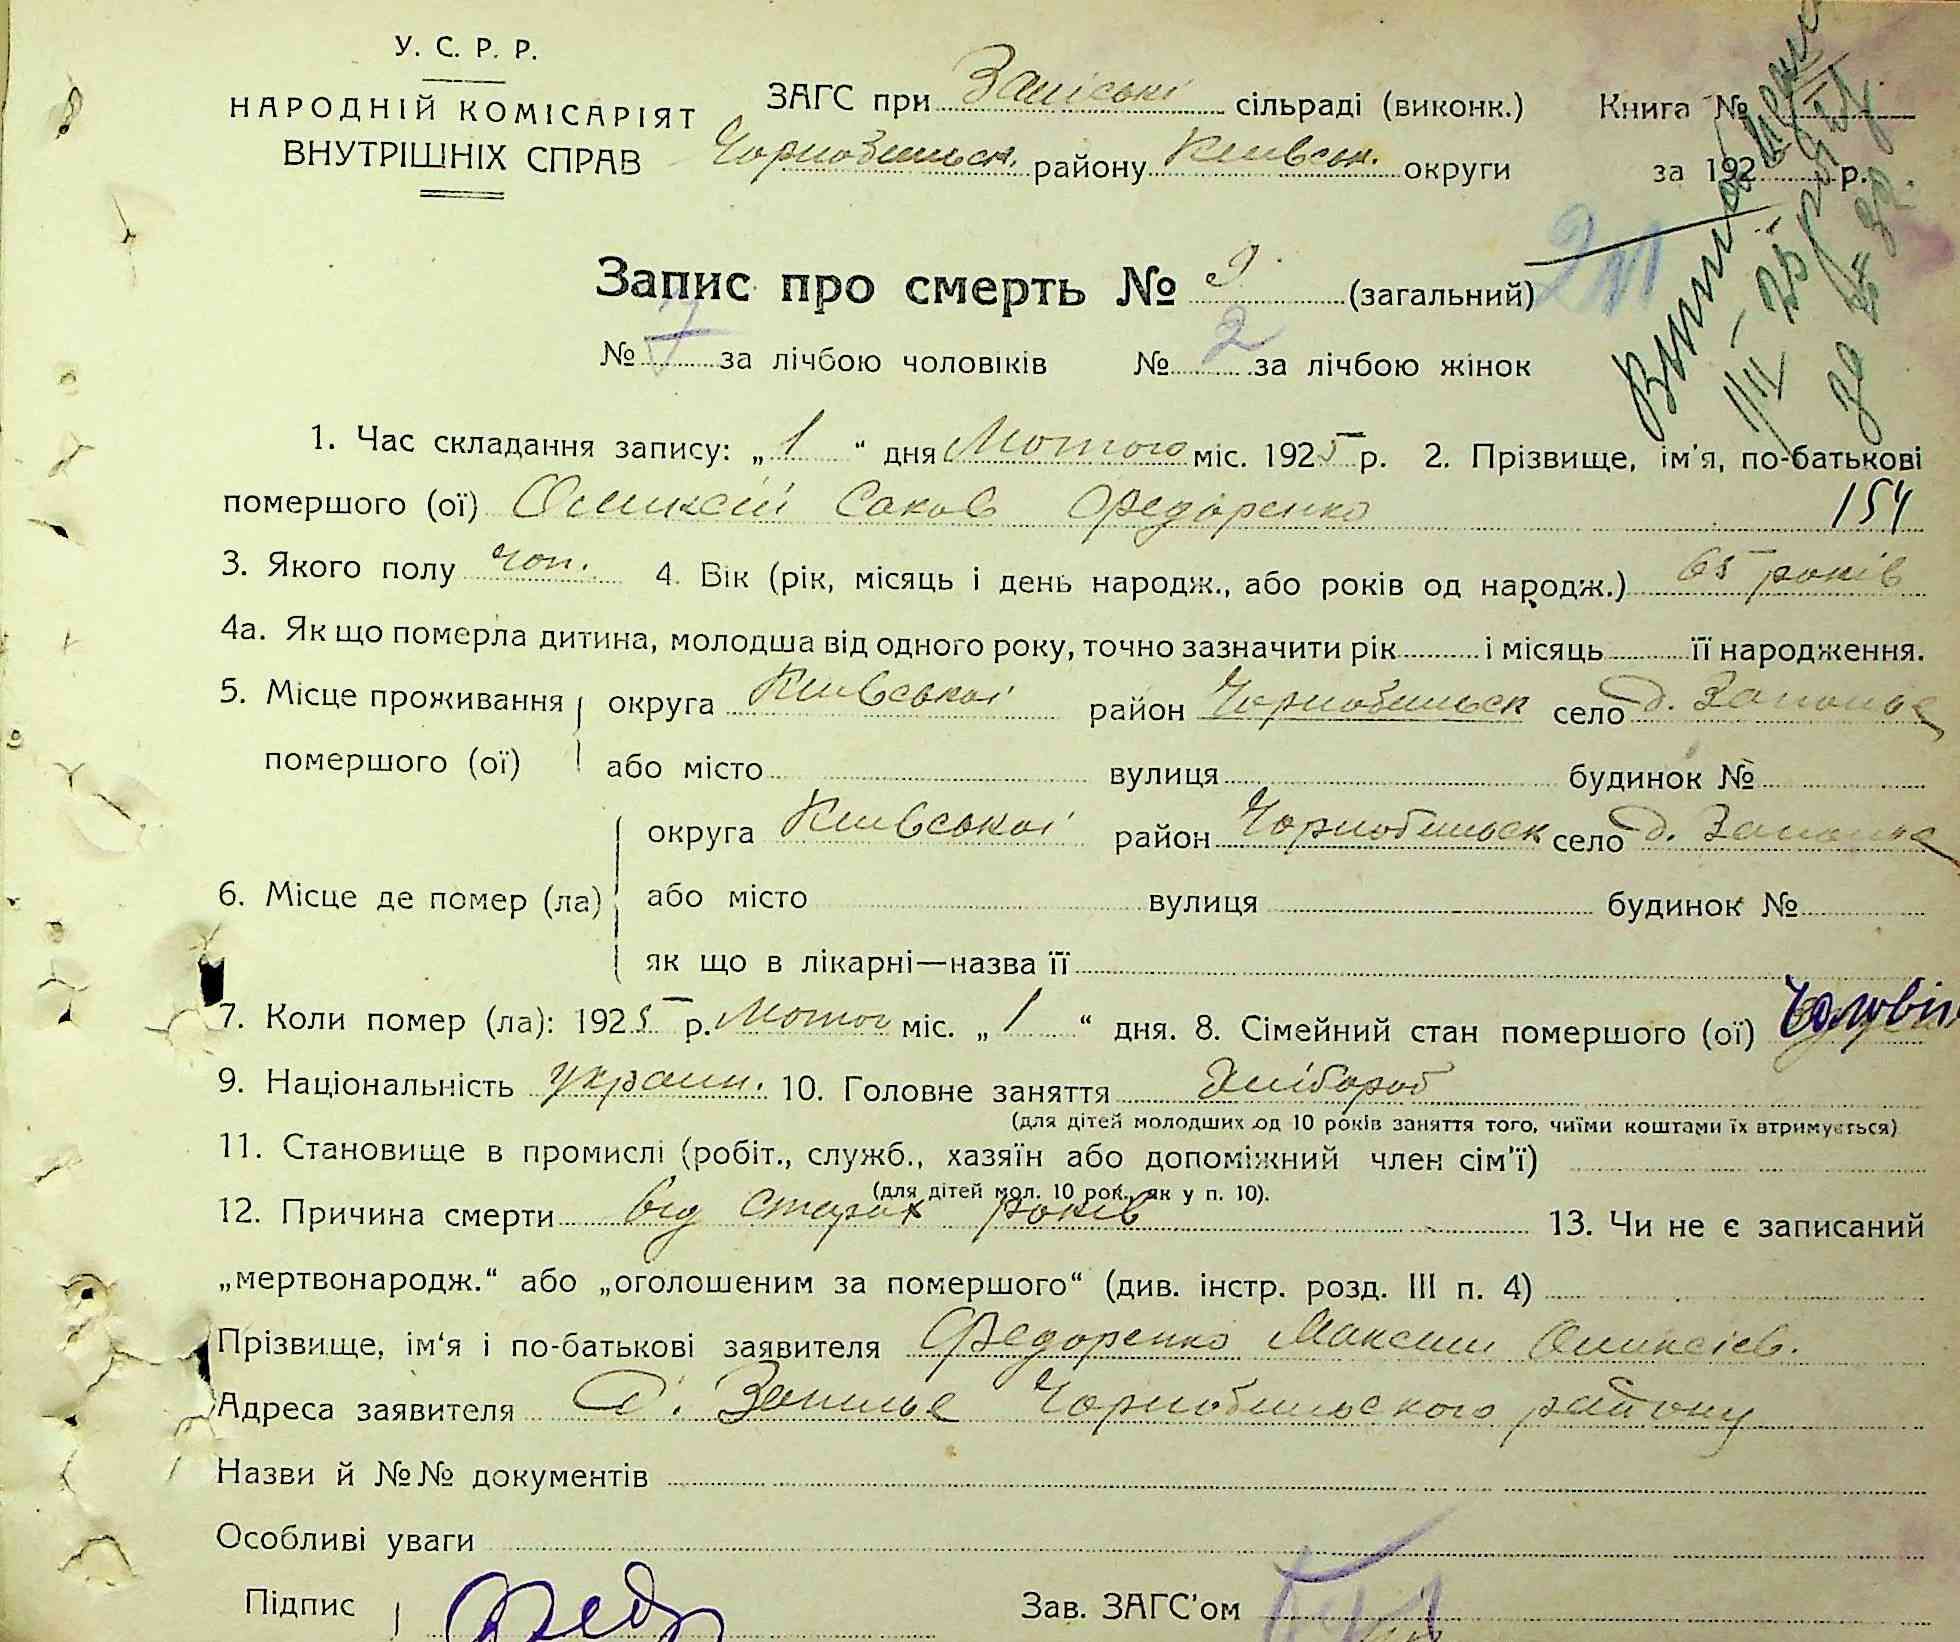 У. С. Р. Р.
НАРОДНІЙ КОМІСАРІЯТ
ВНУТРІШНІХ СПРАВ
ЗАГС при сільраді (виконк.) Книга №
Чорнобильськ. району Київськ. округи за 192 р.
211
Запис про смерть № 9 (загальний)
№ 7 за лічбою чоловіків № 2 за лічбою жінок
1. Час складання запису: „ 1 “ дня Лютого міс. 1925 р. 2. Прізвище, ім'я, по-батькові
помершого (ої) Оликсій Саков Федоренко 154
3. Якого полу чол. 4. Вік (рік, місяць і день народж., або років од народж.) 65 років
4а. Як що померла дитина, молодша від одного року, точно зазначити рік і місяць її народження.
5. Місце проживання округа Київської район Чорнобильськ село д. Запилье
помершого (ої) або місто вулиця будинок №
округа Київської район Чорнобильськ село д. Запилье
6. Місце де помер (ла) або місто вулиця будинок №
як що в лікарні—назва її
7. Коли помер (ла): 1925 р. Лютог міс. „ 1 “ дня. 8. Сімейний стан помершого (ої)
9. Національність украин. 10. Головне заняття Хлібороб
(для дітей молодших од 10 років заняття того, чиїми коштами їх втримується)
11. Становище в промислі (робіт., служб., хазяїн або допоміжний член сім'ї)
(для дітей мол. 10 рок., як у п. 10).
12. Причина смерти від старих років 13. Чи не є записаний
„мертвонародж.“ або „оголошеним за помершого“ (див. інстр. розд. III п. 4)
Прізвище, ім'я і по-батькові заявителя Федоренко Максим Оликсієв.
Адреса заявителя Д. Запилье Чорнобильского району
Назви й №№ документів
Особливі уваги
Підпис Федо Зав. ЗАГС'ом